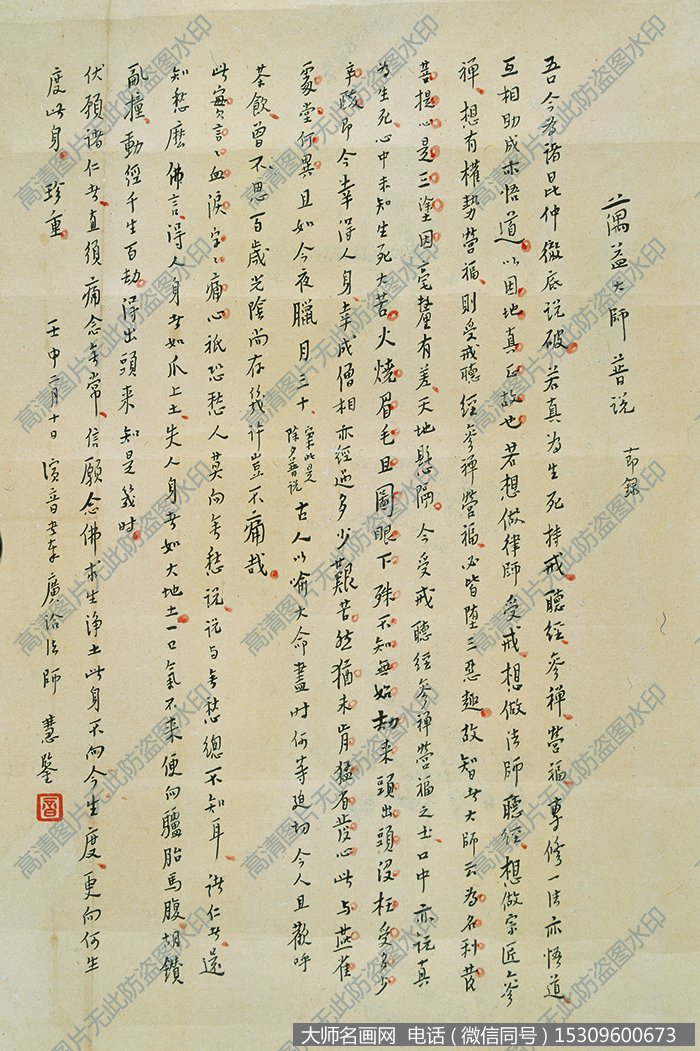 蕅益大師普說 節錄
吾今為諸昆仲徹底說破。若真為生死持戒、聽經、參禪、營福、專修一法亦悟道
互相助成亦悟道。以因地真正故也。若想做律師受戒、想做法師聽經、想做宗匠參
禪、想有權勢營福、則受戒聽經參禪營福、必皆墮三惡趣。故智者大師云為名利發
菩提心是三塗因。毫釐有差、天地懸隔。今受戒聽經參禪營福之士口中亦說真
為生死、心中未知生死大苦。火燒眉毛且圖眼下。殊不知無始劫來頭出頭沒枉受多少
辛酸。即今幸得人身、幸成僧相亦經過多少艱苦。然猶未肯猛省發心。此與燕雀
處堂何異。且如今夜臘月三十、案此是除夕普說 古人以喻大命盡時何等迫切。今人且歡呼
茶飲、曾不思百歲光陰尚存幾許。豈不痛哉。
此實言言血淚、字字痛心。祇恐愁人莫向無愁說、說與無愁總不知耳。諸仁者、還
知愁麼。佛言得人身者如爪上土、失人身者如大地土。一口氣不來便向驢胎馬腹、胡鑽
亂撞、動經千生百劫。得出頭來知是幾時。
伏願諸仁者、直須痛念無常、信願念佛求生淨土。此身不向今生度、更向何生
度此身。珍重。 壬申二月十日 演音書奉 廣洽法師 慧鑒
音
大师名画网 电话（微信同号）15309600673
高清图片无此防盗图水印